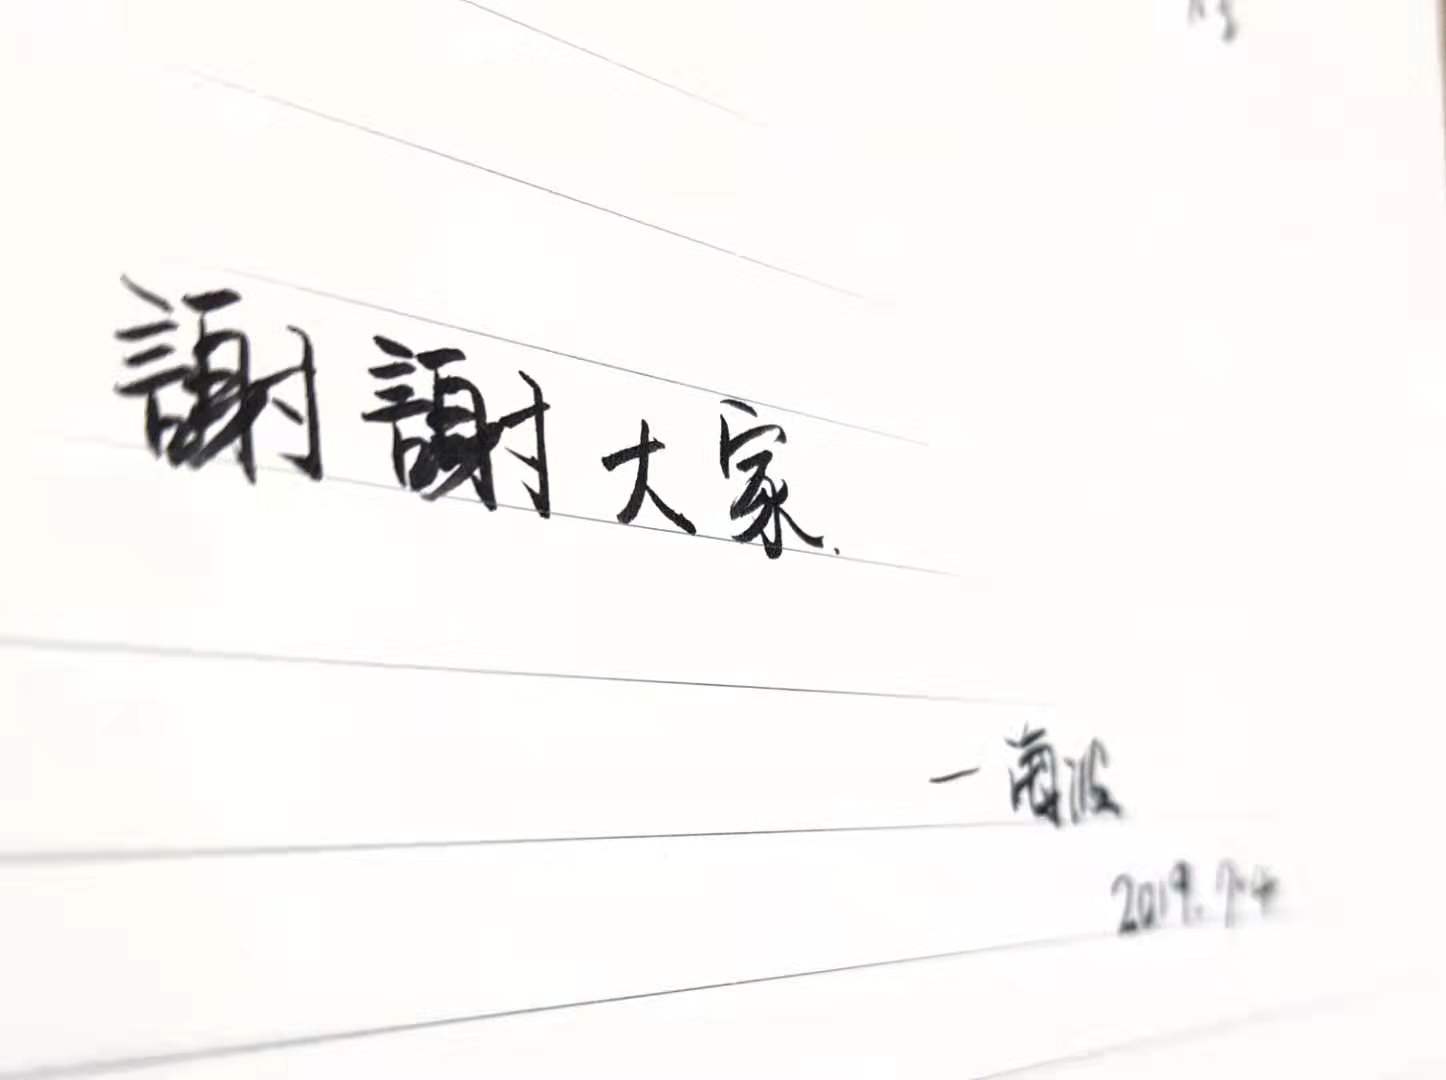 謝謝大家.
2019.7.4